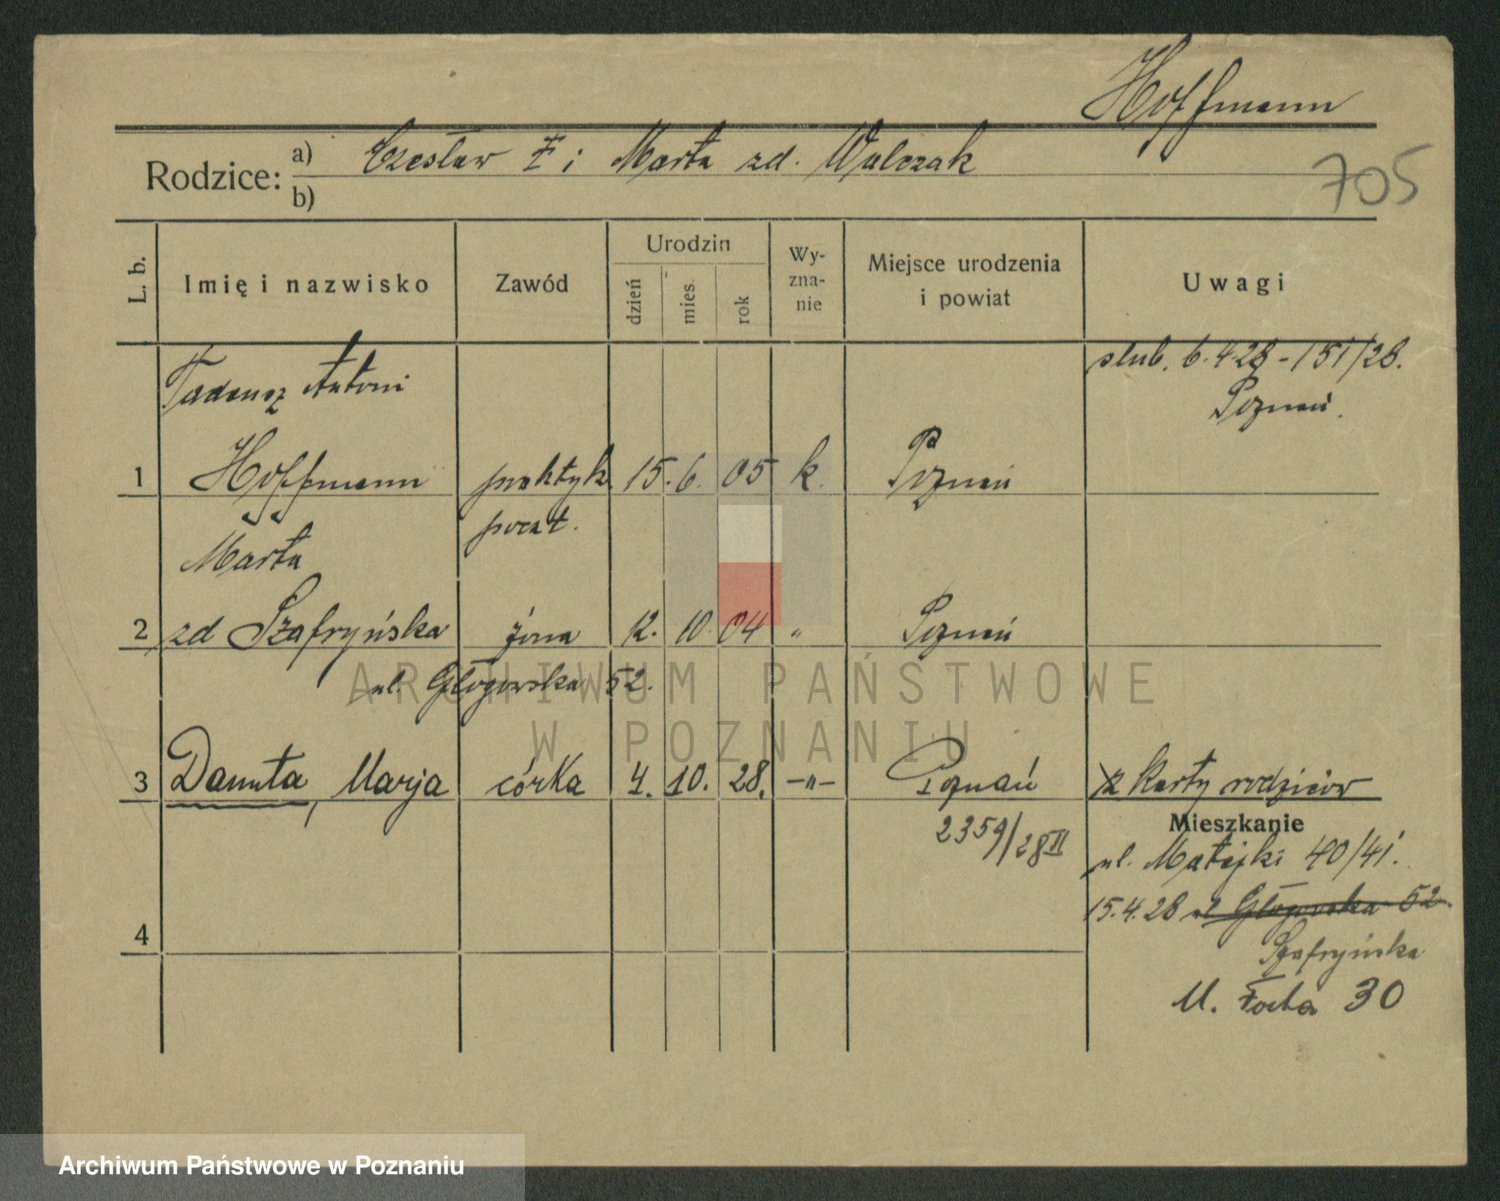 Hoffmann
Rodzice: a) Czesław F i Marta zd. Walczak
b)
705
L. b.
Imię i nazwisko
Zawód
Urodzin
dzień
mies.
rok
Wy-
zna-
nie
Miejsce urodzenia
i powiat
Uwagi
Tadeusz Antoni
ślub. 6.4.28 - 151/28.
Poznań.
1 Hoffmann praktyk 15. 6. 05 k. Poznań
poczt.
Marta
2 zd Szafryńska żona 12. 10. 04 " Poznań
ul. Głogowska 52.
3 Danuta, Marja córka 4. 10. 28. -"- Poznań z Karty rodziców
2359/28 II
Mieszkanie
ul. Matejki 40/41.
15.4.28 ul Głogowska 52.
4
Szafryńska
M. Focha 30
ARCHIWUM PAŃSTWOWE
W POZNANIU
Archiwum Państwowe w Poznaniu